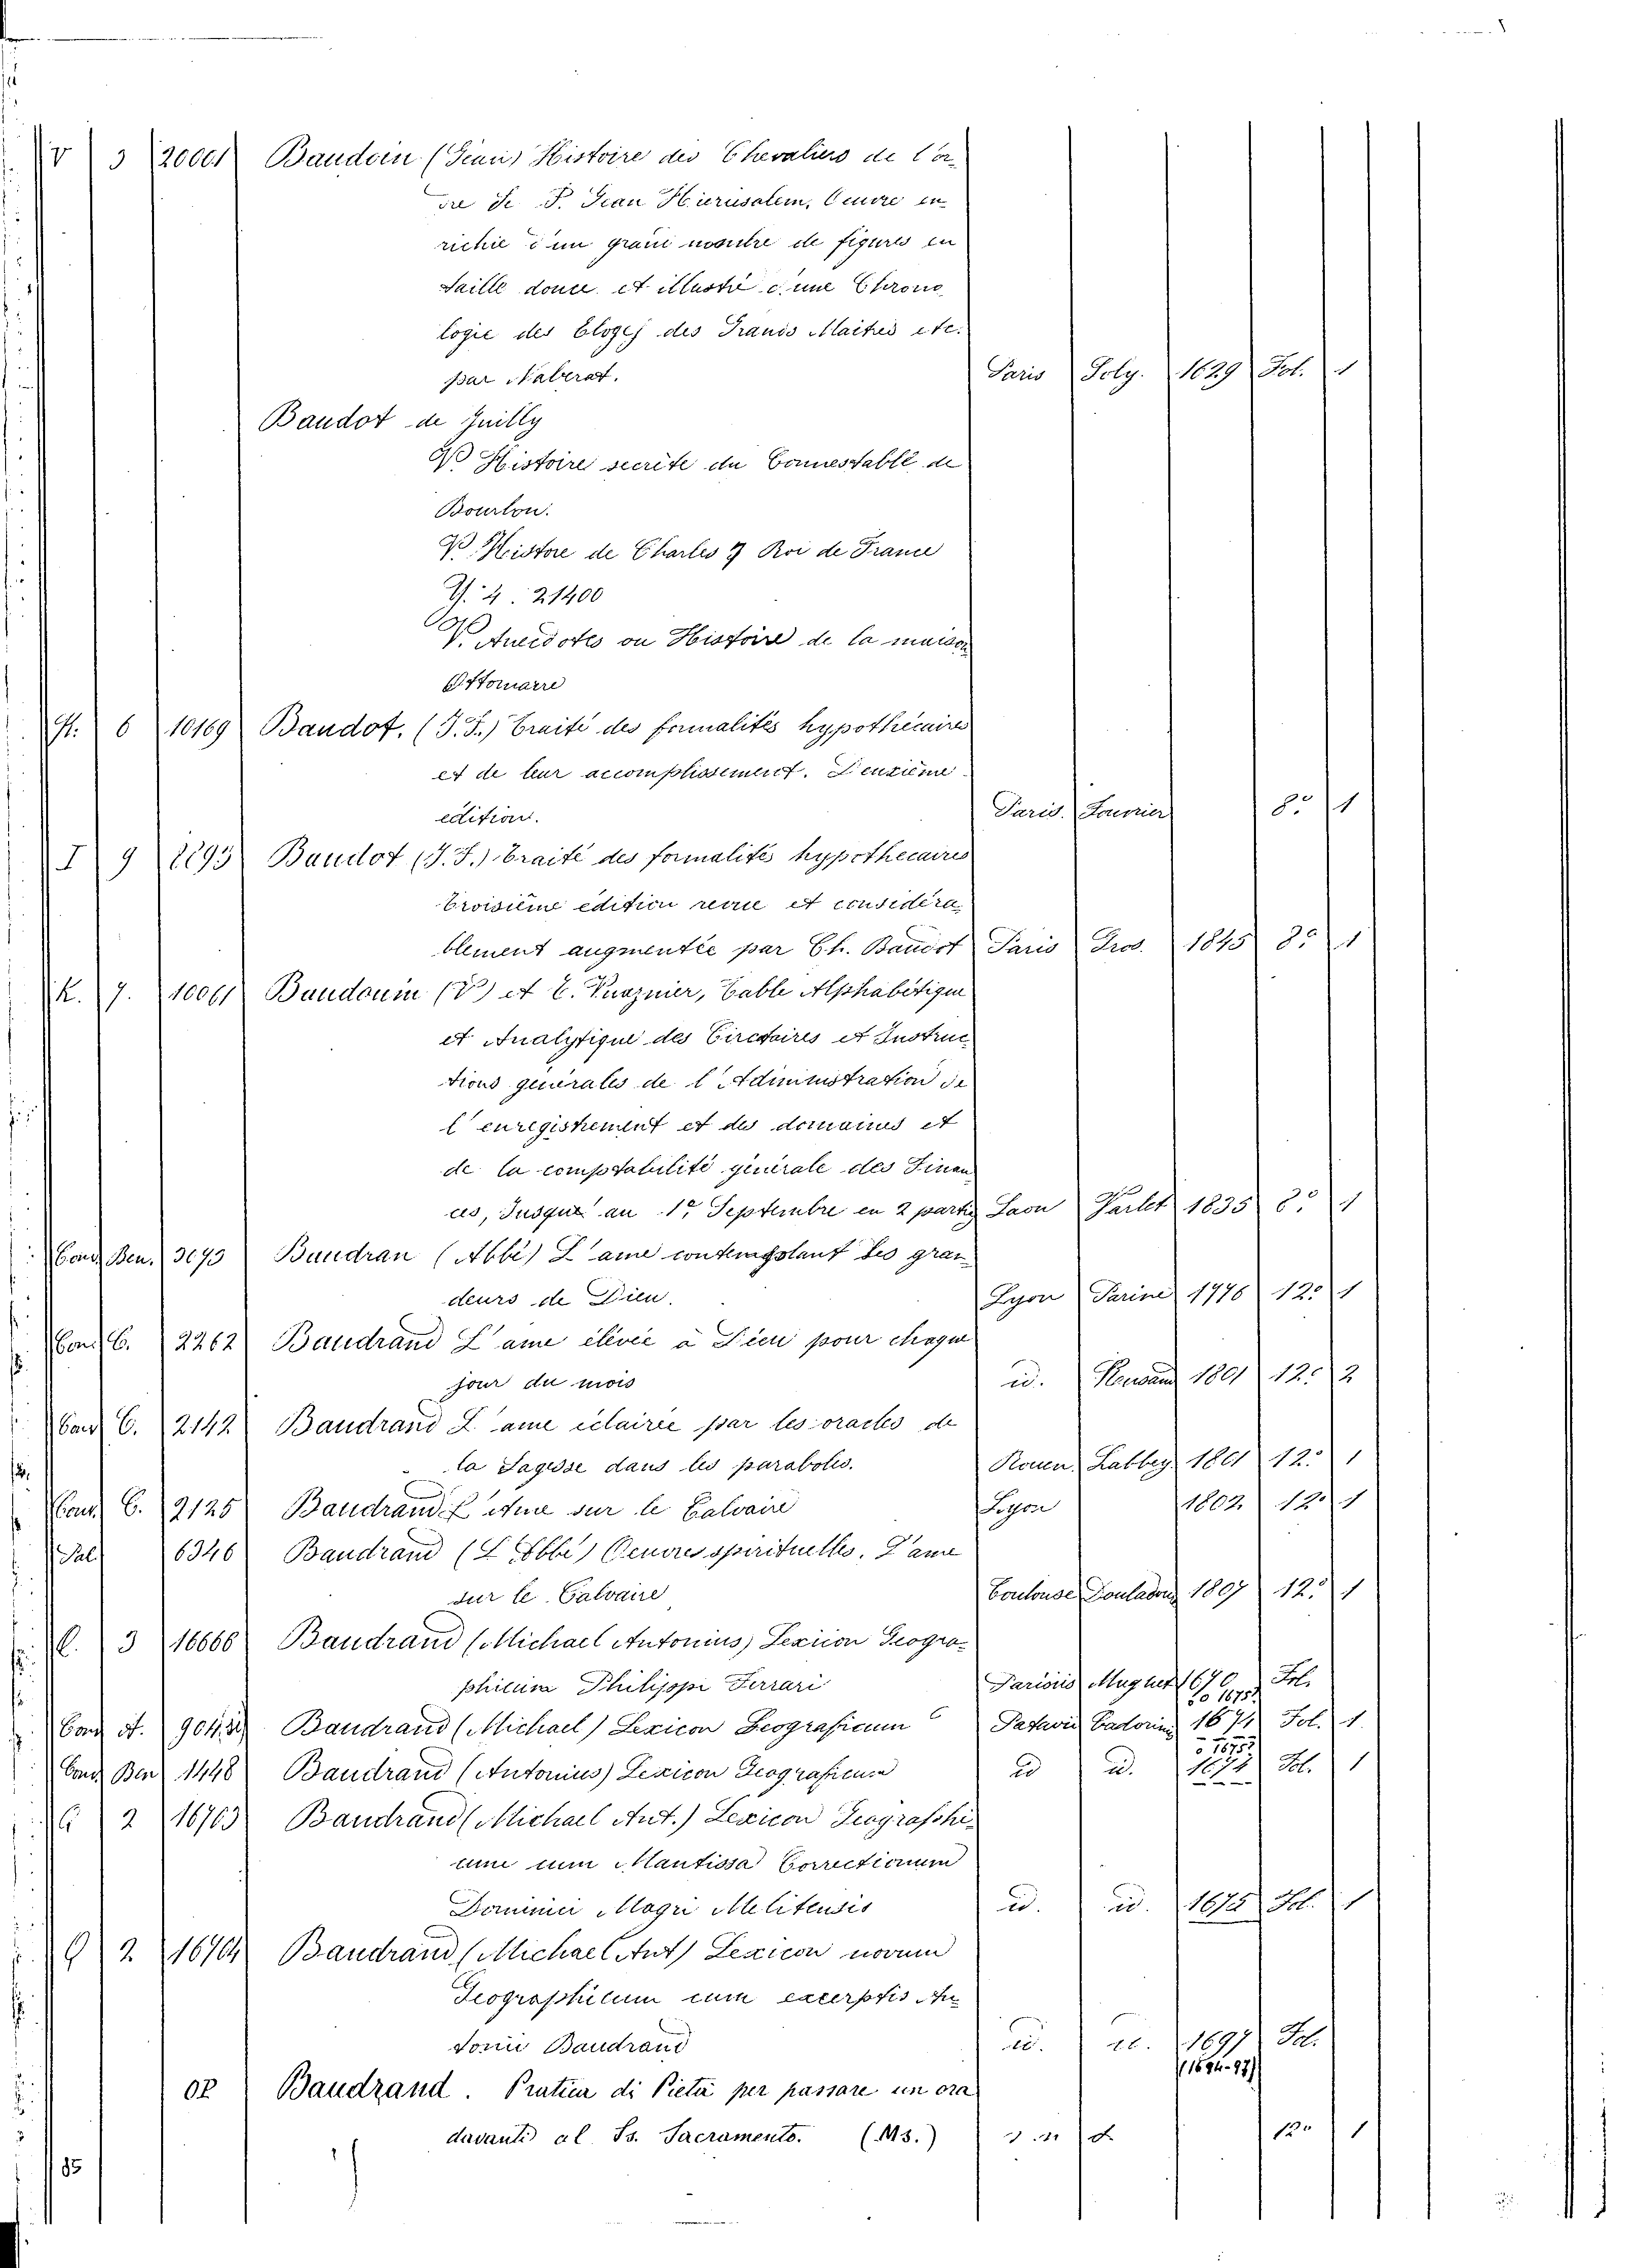 V 3 20001 Baudoin (Jean) Histoire des Chevaliers de l'or
dre de S. Jean Hierusalem, Oeuvre en
richie d'un grand nombre de figures en
taille douce et illustré d'une Chrono
logie des Eloges des Grands Maitres etc.
par Naberat. Paris Soly. 1629 Fol. 1
Baudot de Juilly
V. Histoire secrete du Connestable de
Bourbon.
V. Histore de Charles 7 Roi de France
Y. 4. 21400
V. Anecdotes ou Histoire de la maison
Ottomanne
H. 6 10169 Baudot. (J. F.) Traité des formalités hypothécaires
et de leur accomplissement. Deuxieme
edition. Paris. Fournier 8º 1
I 9 Baudot (J. F.) Traité des formalités hypothecaires
Troisieme edition revue et considera
blement augmentée par Ch. Baudot Paris Gros. 1845 8º 1
K. 7. 10061 Baudouin (V) et C. Table Alphabétique
et Analytique des Circulaires et Instruc
tions generales de l'Administration de
l'enregistrement et des domaines et
de la comptabilité générale des Finan
ces, Jusqu'au 1er Septembre en 2 parties Laon Varlet 1835 8º 1
Cons. Ben. 3093 Baudran (Abbé) L'ame contemplant les gran
deurs de Dieu. Lyon Parine 1776 12º 1
Cons. C. 2262 Baudrand L'ame élevée à Dieu pour chaque
jour du mois id. 1801 12º 2
Cons. C. 2142 Baudrand L'ame eclairée par les oracles de
la Sagesse dans les paraboles. Rouen. Labbey 1801 12º 1
Cons. C. 2125 Baudrand L'Ame sur le Calvaire Lyon 1802 12º 1
Pal 6346 Baudrand (L'Abbé) Oeuvres spirituelles. L'ame
sur le Calvaire Toulouse Douladour 1807 12º 1
C. 3 16666 Baudrand (Michael Antonius) Lexicon Geogra-
phicum Philippi Ferrari Parisiis Muguet 1670 Fol.
Cons. A. Baudrand (Michael) Lexicon Geograficum Patavii Cadorini 1671 Fol. 1
Cons. Ben 1448 Baudrand (Antonius) Lexicon Geograficum id id. Fol. 1
G 2 16703 Baudrand (Michael Ant.) Lexicon Geographi-
cum cum Mantissa Correctionum
Dominici Magri Melitensis id. id. 1675 Fol. 1
G 2. 16704 Baudrand (Michael Ant) Lexicon novum
Geographicum cum excerptis An
tonii Baudrand id. id. 1697 Fol.
(1694-97)
OR Baudrand. Pratica di Pietà per passare un ora
davanti al Ss. Sacramento. (Ms.) 12º 1
85